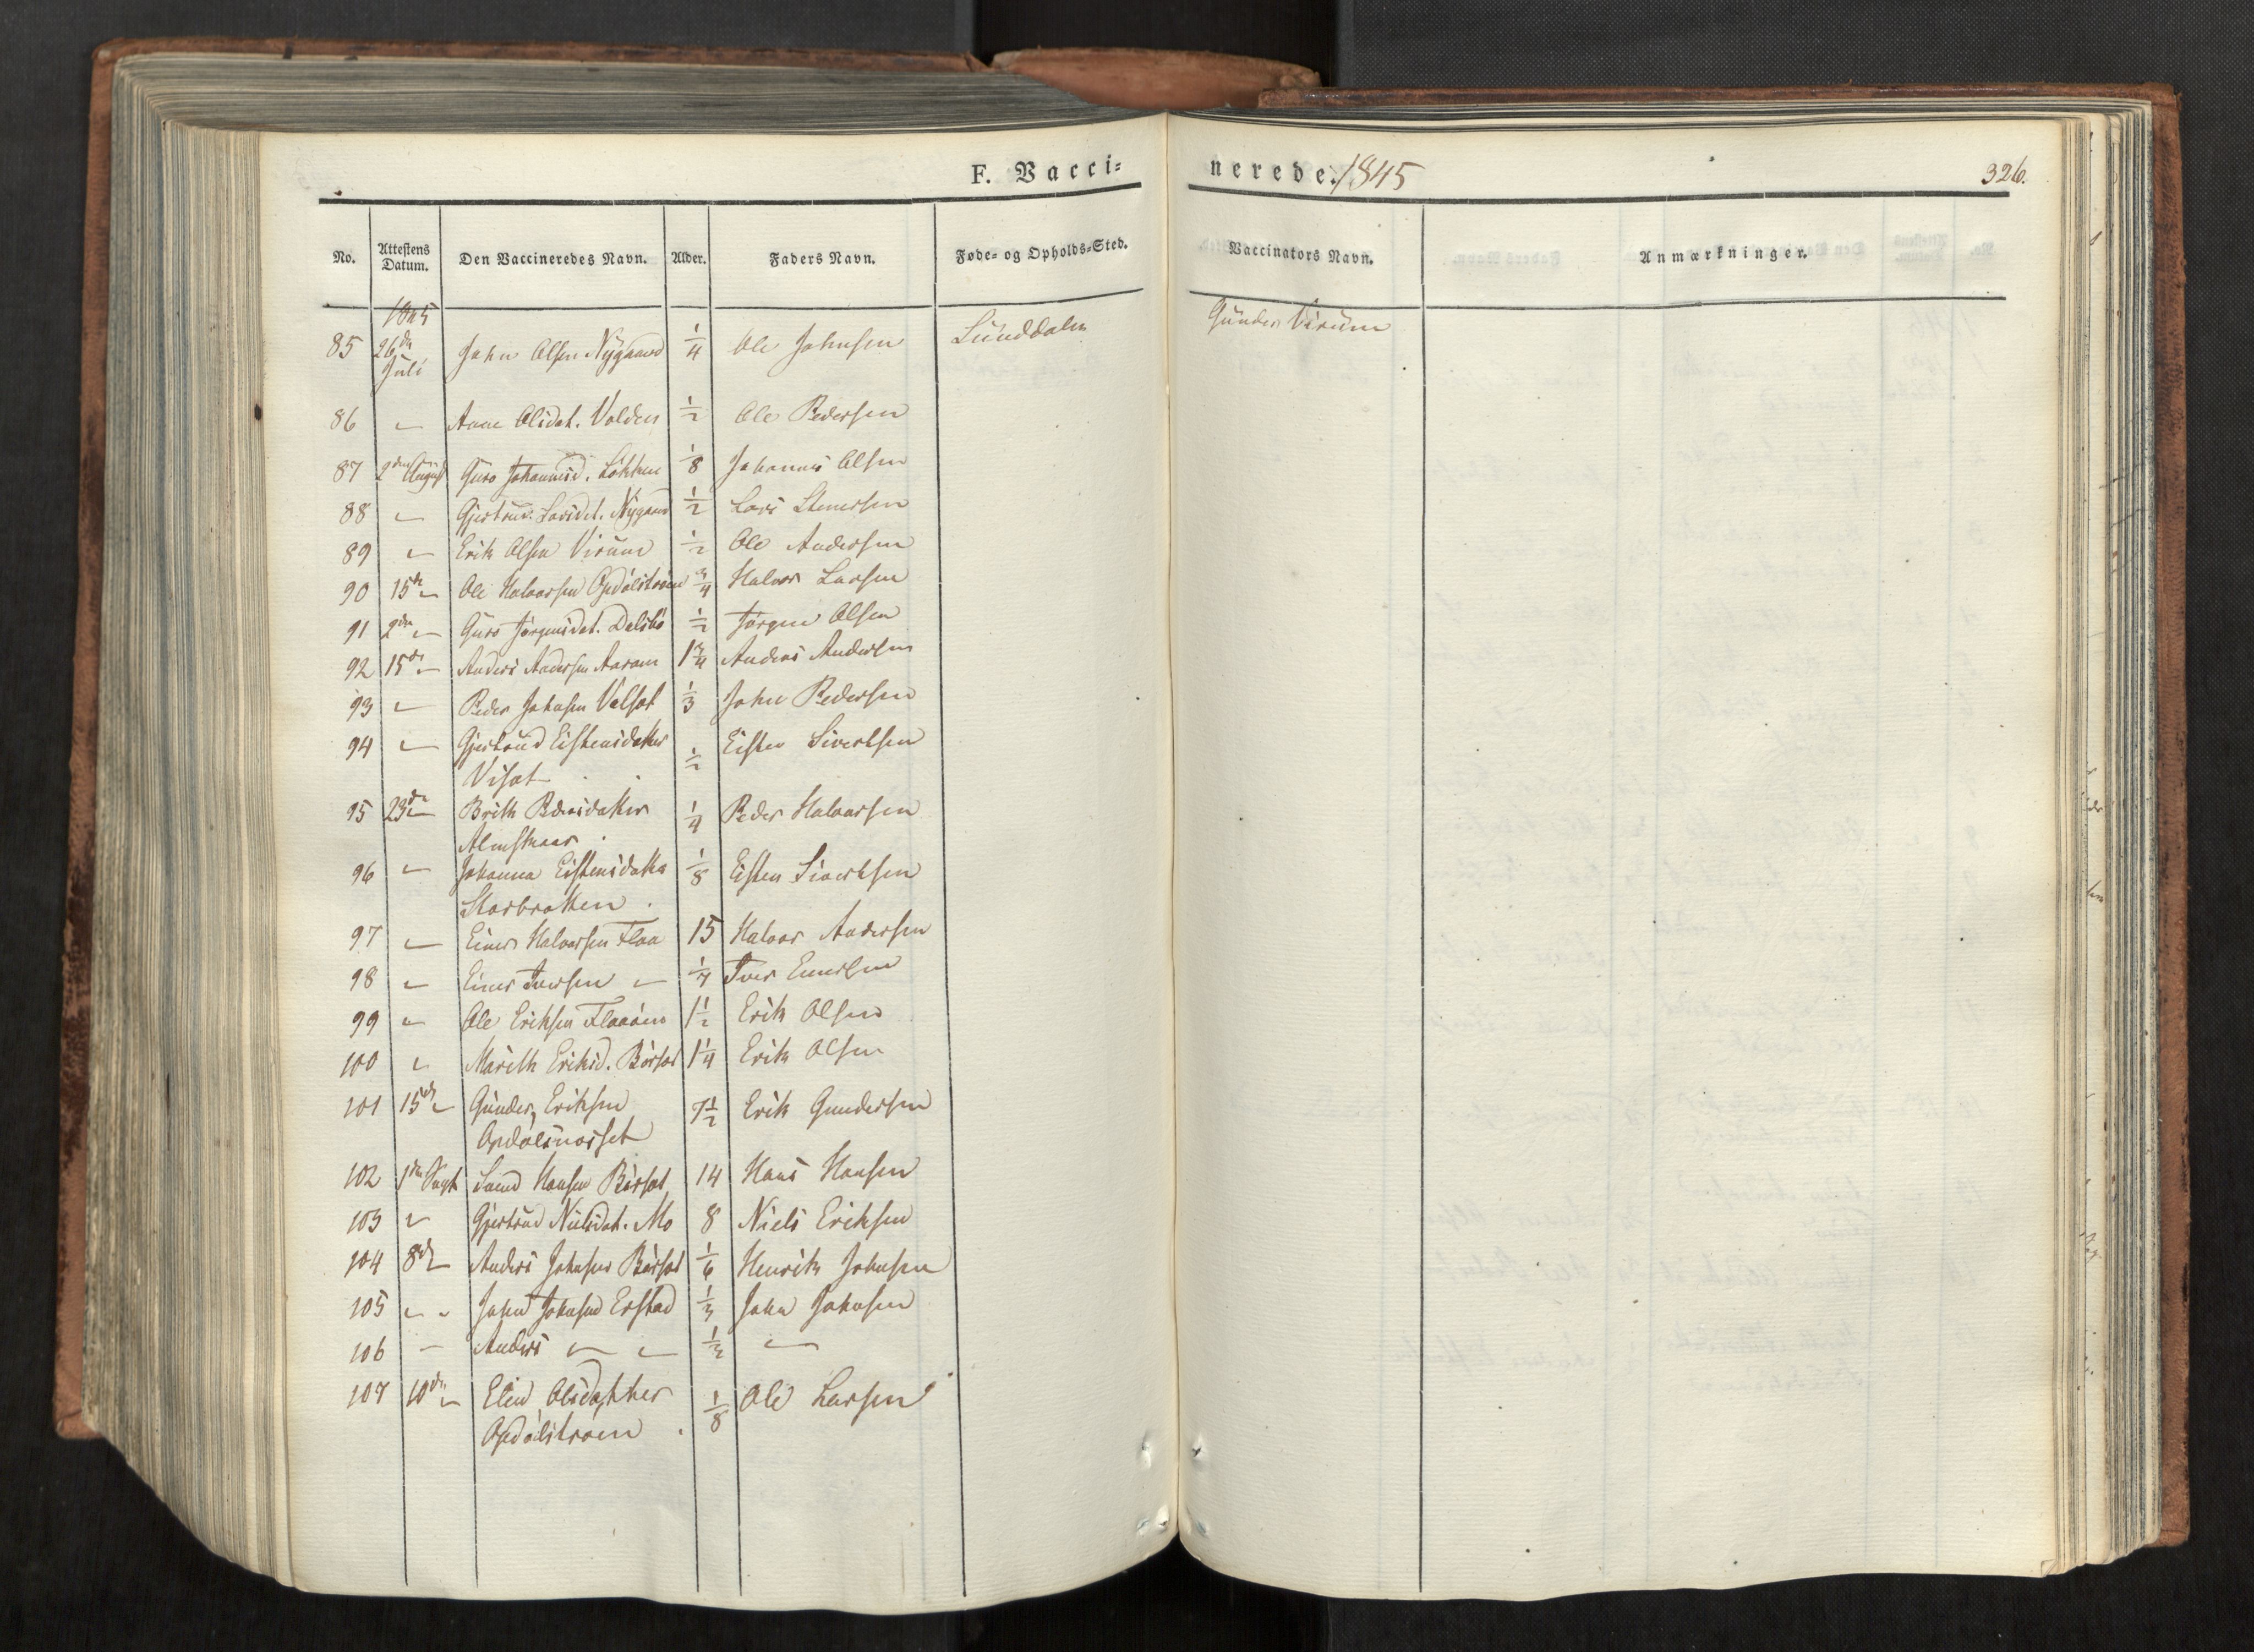 F. Vacci=
nerede. 1845
326.
No. Attestens Datum. Den Vaccineredes Navn. Alder. Faders Navn. Føde= og Opholds=Sted. Vaccinators Navn. Anmærkninger.
1845
85 26de Juli John Olsen Nÿgaard 1/4 Ole Johnsen Sunddalen Gunder Virum
86 " Ane Olsdat. Volden 1/2 Ole Pedersen
87 2den August Guro Johannesd. Løkken 1/8 Johannes Olsen
88 " Gjertrud Larsdt. Nÿgaard 1/2 Lars Stenersen
89 " Erik Olsen Virum 1/2 Ole Andersen
90 15de " Ole Halvorsen Opdølstrøen 3/4 Halvor Larsen
91 2den " Guro Jørgensdat. Dalsbø 1/2 Jørgen Olsen
92 15de " Anders Andersen 1 3/4 Anders Andersen
93 " Peder Johnsen 1/3 John Pedersen
94 " Gjertrud Eistensdatter 1/2 Eisten Sivertsen
95 23de " Brith Pedersdatter 1/4 Peder Halvorsen
Almskaar
96 " Johanna Eistensdatter 1/8 Eisten Sivertsen
Storbrotten
97 " Einer Halvorsen Flaa 15 Halvor Andersen
98 " Einer Iversen " Iver Einersen
99 " Ole Eriksen Flaaøien 1 1/2 Erik Olsen
100 " Marith Eriksd. Børset 1 1/4 Erik Olsen
101 15de " Gunder Eriksen 7 1/2 Erik Gundersen
Opdølsnorset
102 1den Hansen Børset 14 Hans Hansen
103 " Gjertrud Nielsdat. Mo 8 Niels Eriksen
104 8de " Anders Johnsen Børset 1/6 Henrik Johnsen
105 " " John Johnsen Erstad 1/3 John Johnsen
106 " Anders " " "
107 10de " Elen Olsdatter 1/8 Ole Larsen
Opdølstrøen